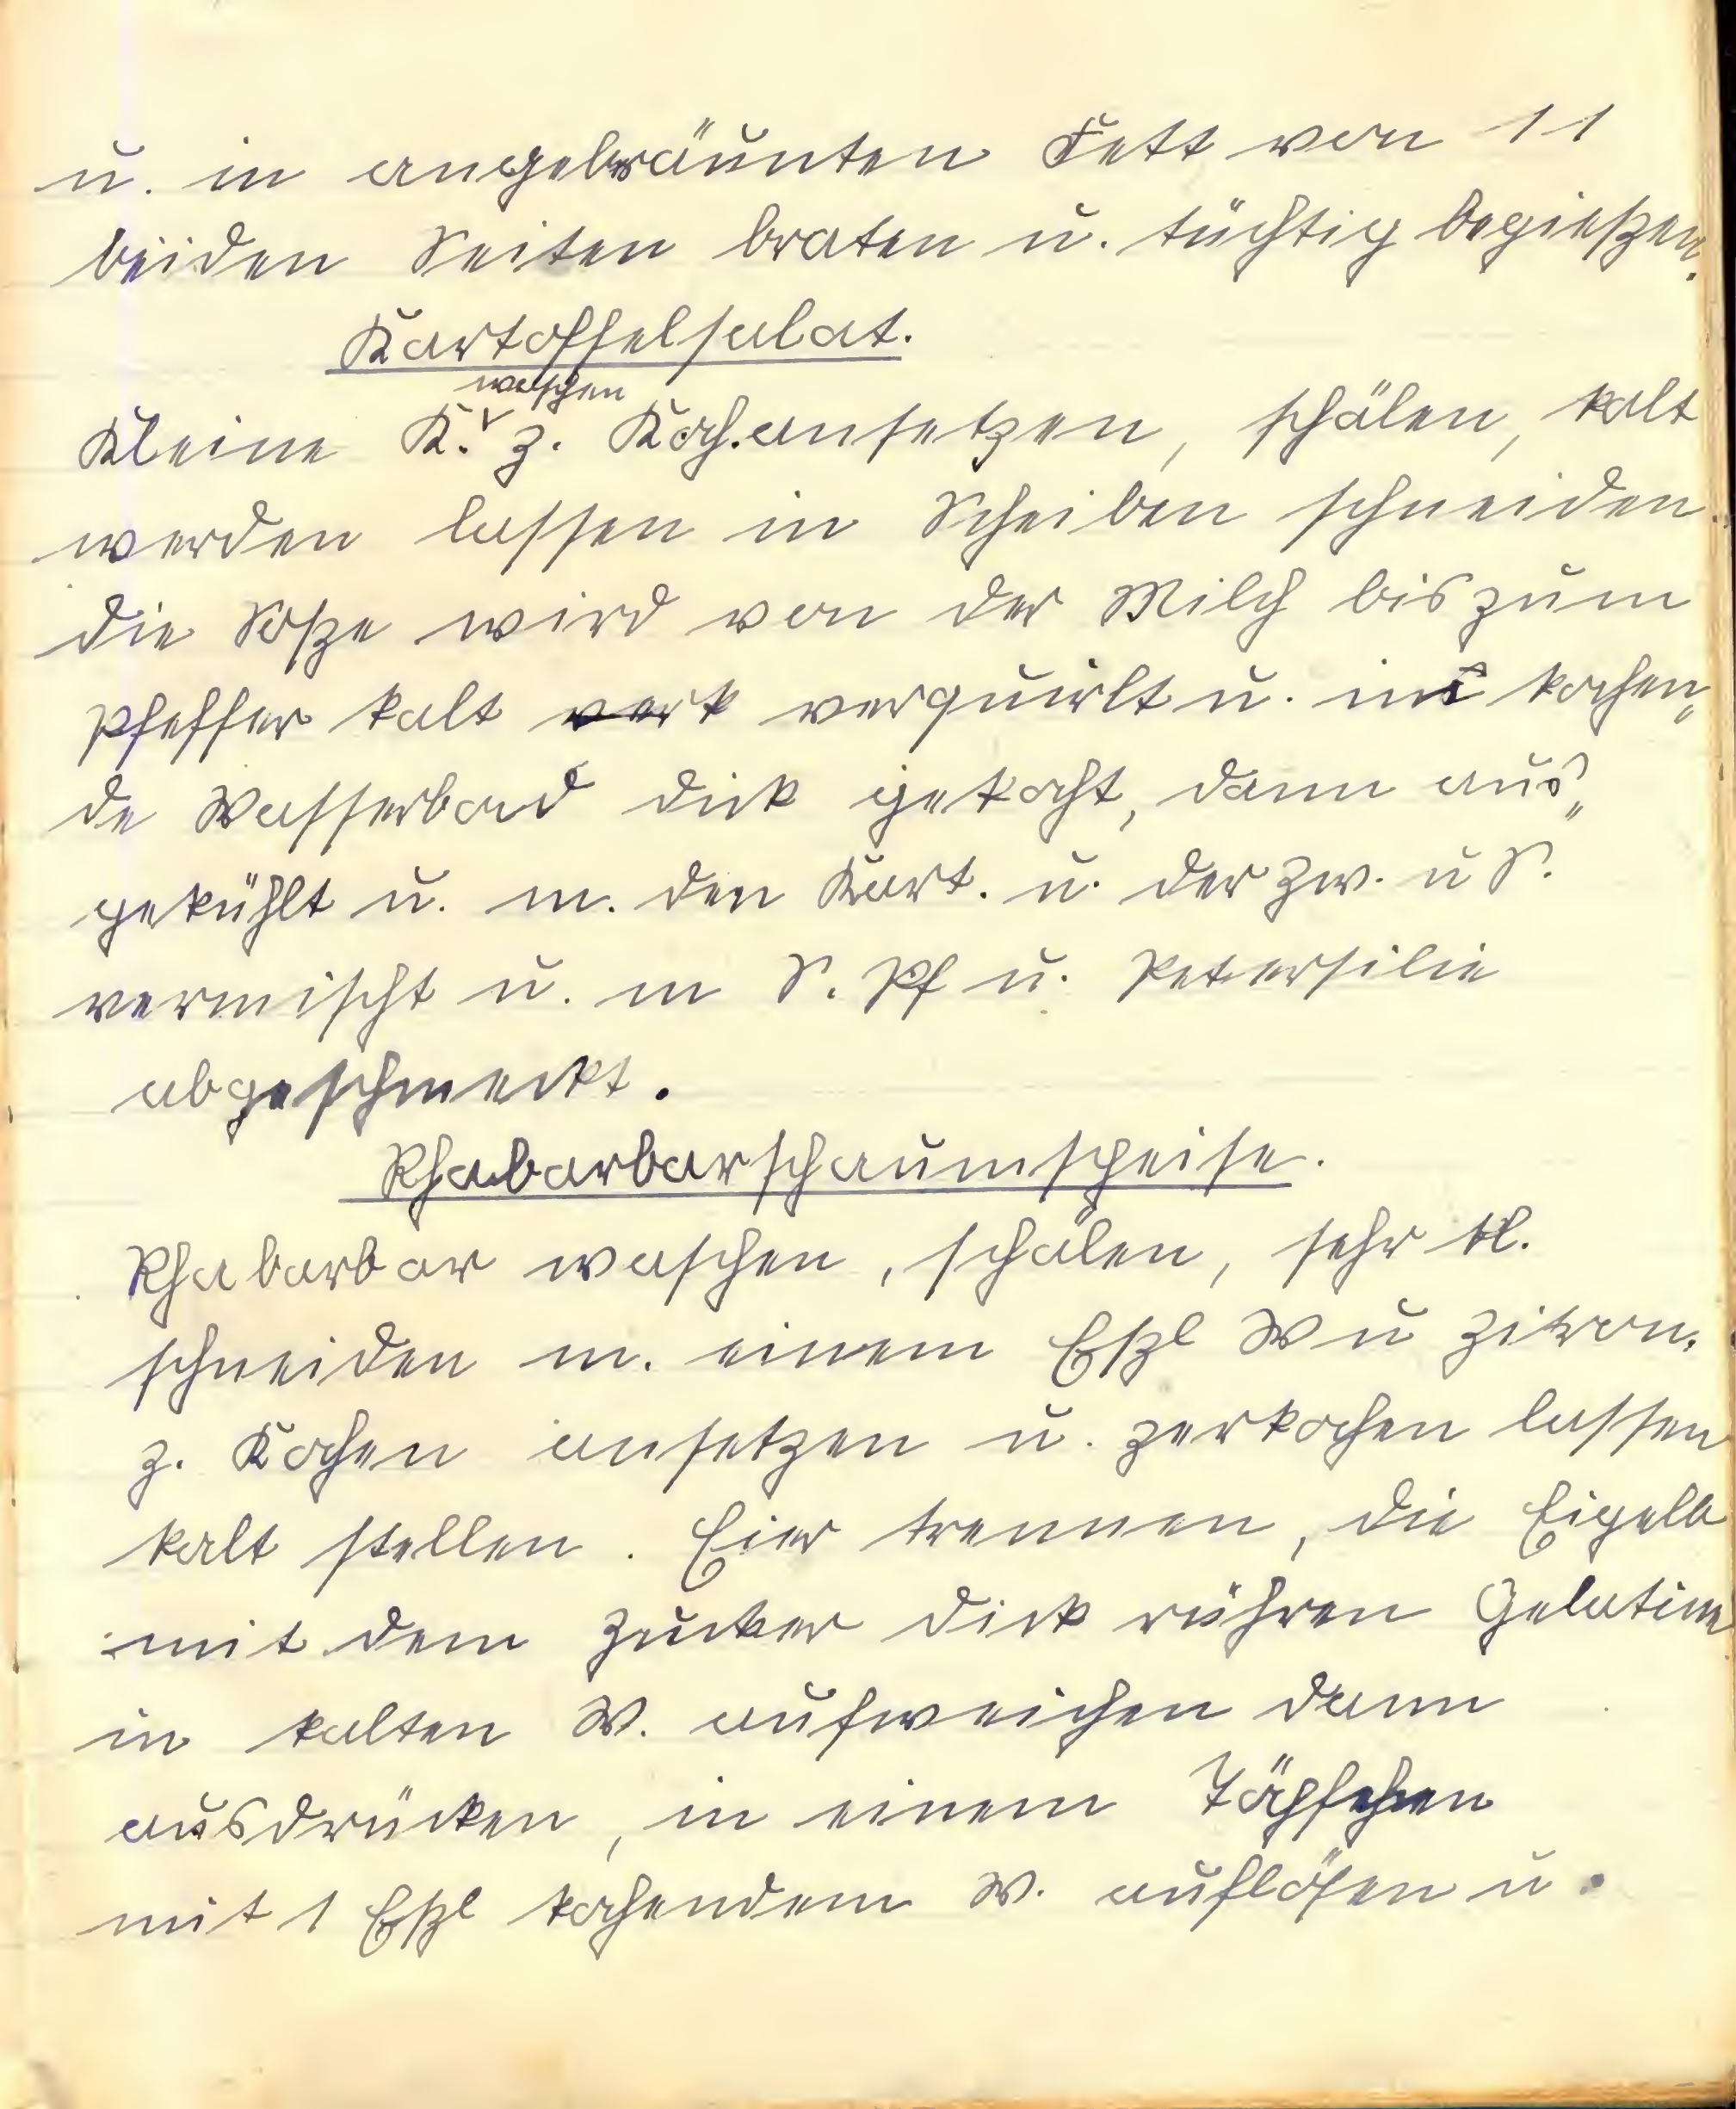 u. in angebräunten Fett von 11
beiden Seiten braten u. tüchtig begießen.
Kartoffelsalat.
waschen
Kleine K. z. Koch.ansetzen, schälen, kalt
werden lassen in Scheiben schneiden.
die Soße wird von der Milch bis zum
Pfeffer kalt verk verquirlt u. im kochen„
de Wasserbad dick gekocht, dann aus„
gekühlt u. m. den Kart. u. der Zw. u S.
vermischt u. m S. Pf u. Petersilie
abgeschmeckt.
Rhabarbarschaumspeise.
Rhabarbar waschen, schälen, sehr kl.
schneiden m. einem Eßl W u Zitron.
z. Kochen ansetzen u. zerkochen lassen
kalt stellen. Eier trennen, die Eigelb
mit dem Zucker dick rühren Gelatine
in kalten W. aufweichen dann
ausdrücken, in einem Töpfchen
mit 1 Eßl kochendem W. auflösen u.